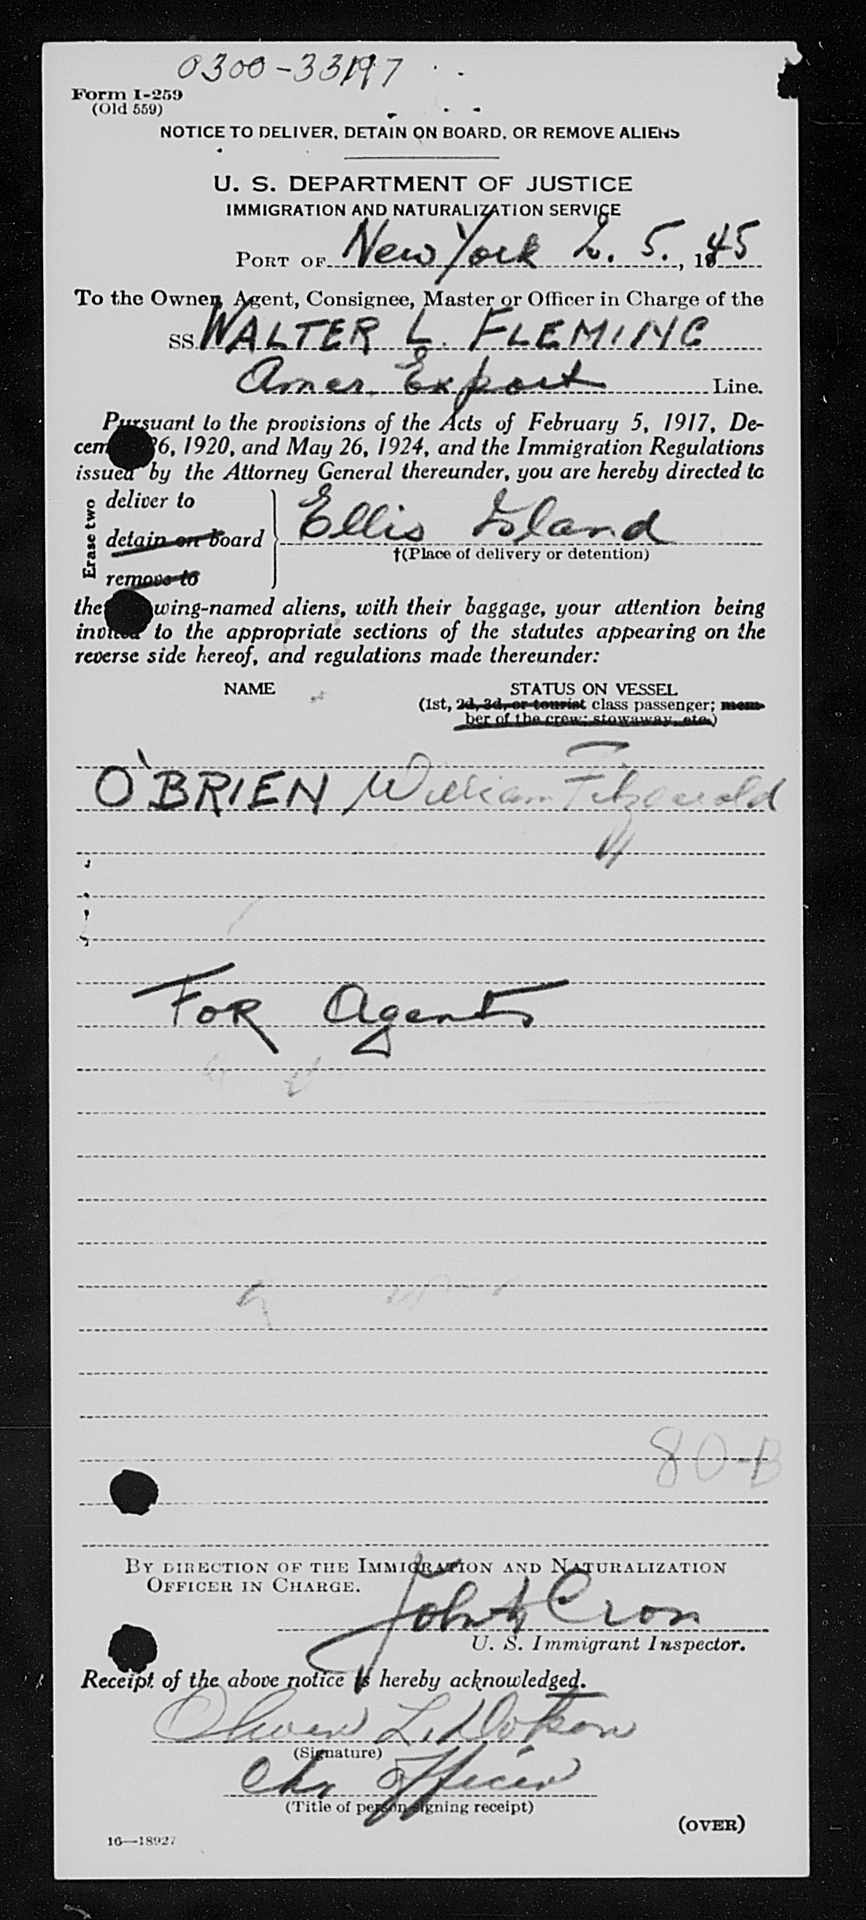 0300-33197
Form I-259
(Old 559)
NOTICE TO DELIVER, DETAIN ON BOARD, OR REMOVE ALIENS
U. S. DEPARTMENT OF JUSTICE
IMMIGRATION AND NATURALIZATION SERVICE
PORT OF New York 2. 5., 1945
To the Owner, Agent, Consignee, Master or Officer in Charge of the
SS WALTER L. FLEMING
Amer. Export Line.
Pursuant to the provisions of the Acts of February 5, 1917, De-
cem 26, 1920, and May 26, 1924, and the Immigration Regulations
issued by the Attorney General thereunder, you are hereby directed to
Erase two
deliver to
detain on board
remove to
Ellis Island
†(Place of delivery or detention)
the wing-named aliens, with their baggage, your attention being
invited to the appropriate sections of the statutes appearing on the
reverse side hereof, and regulations made thereunder:
NAME STATUS ON VESSEL
(1st, 2d, 3d, or tourist class passenger; mem-
ber of the crew; stowaway, etc.)
O'BRIEN William Fitzgerald
FOR Agents
80-B
BY DIRECTION OF THE IMMIGRATION AND NATURALIZATION
OFFICER IN CHARGE.
John Cron
U. S. Immigrant Inspector.
Receipt of the above notice is hereby acknowledged.
L. Dotson
(Signature)
Ch. Officer
(Title of person signing receipt)
(OVER)
16—18927